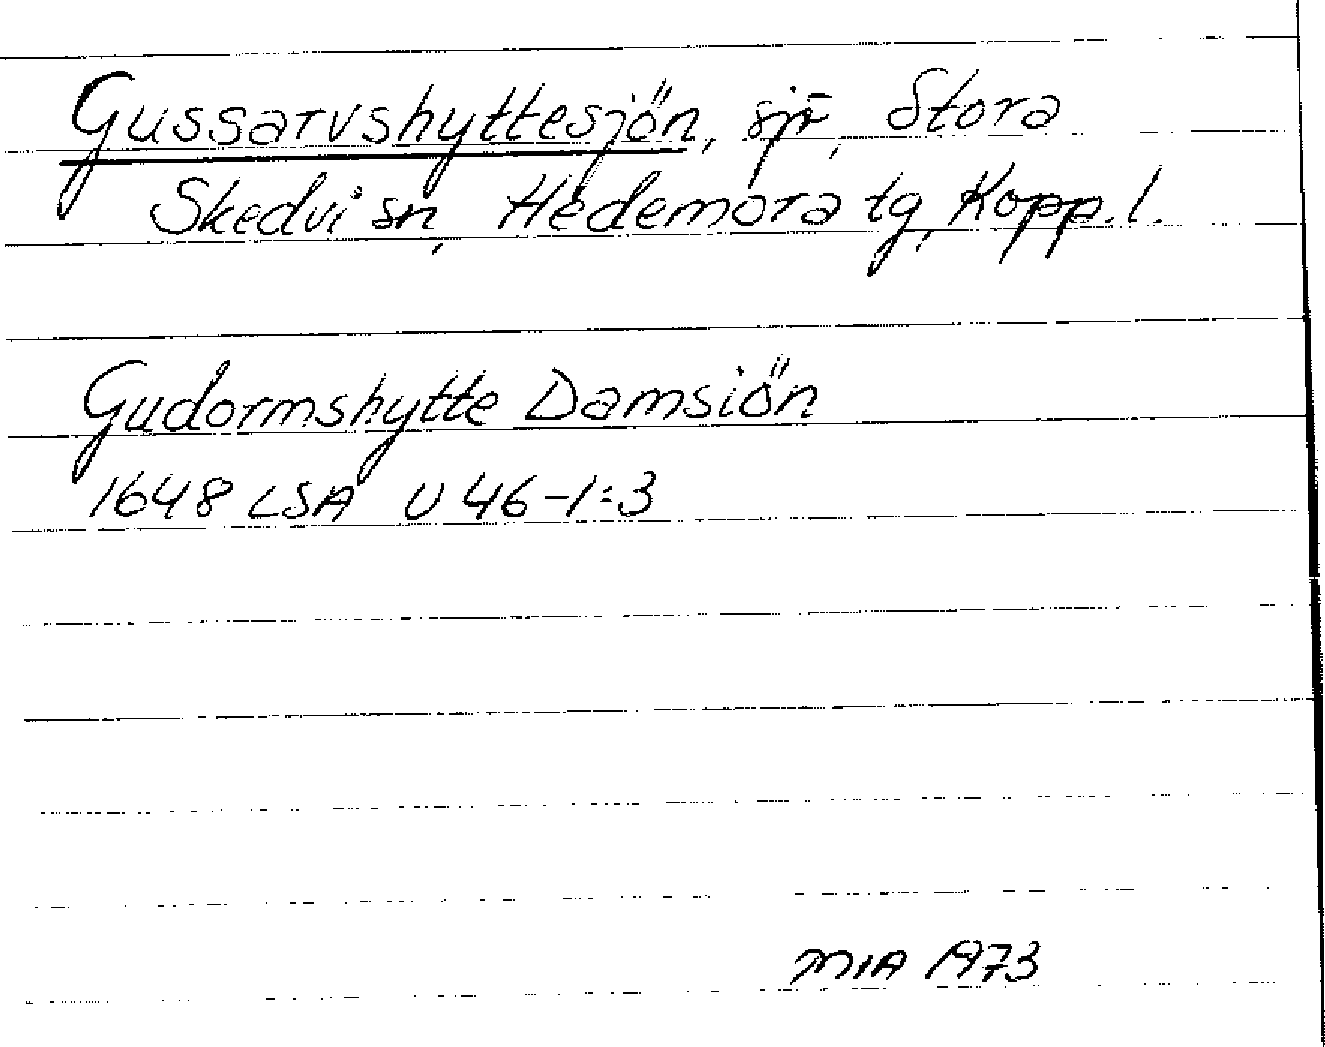 Gussarvshyttesjön, sjö, Stora
Skedvi sn, Hedemora tg, Kopp. l.
Gudormshytte Damsiön
1648 LSA U 46-1:3
MIA 1973